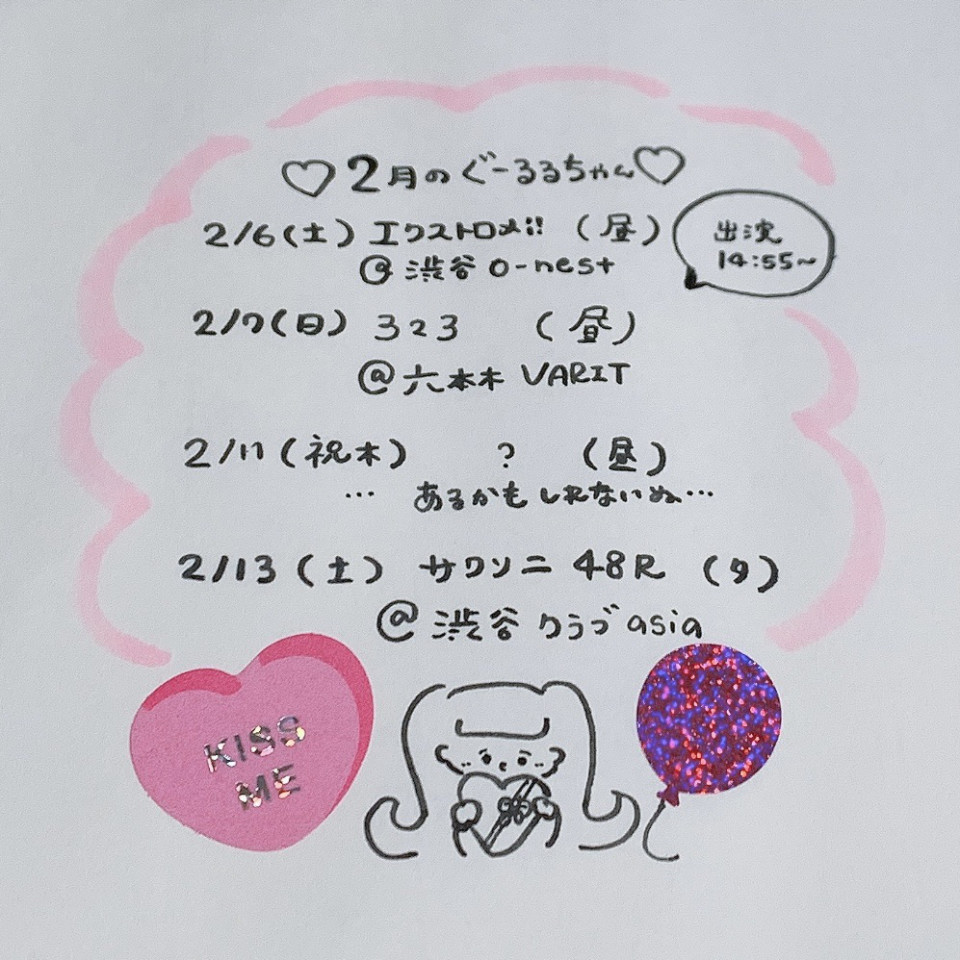 ♡2月のぐーるるちゃん♡
2/6(土) エクストロメ!! (昼)
@ 渋谷 o-nest
出演
14:55~
2/7(日) 323 (昼)
@ 六本木 VARIT
2/11(祝木) ? (昼)
… あるかもしれないぬ…
2/13(土) サワソニ 48R (夕)
@ 渋谷 クラブ asia
KISS
ME